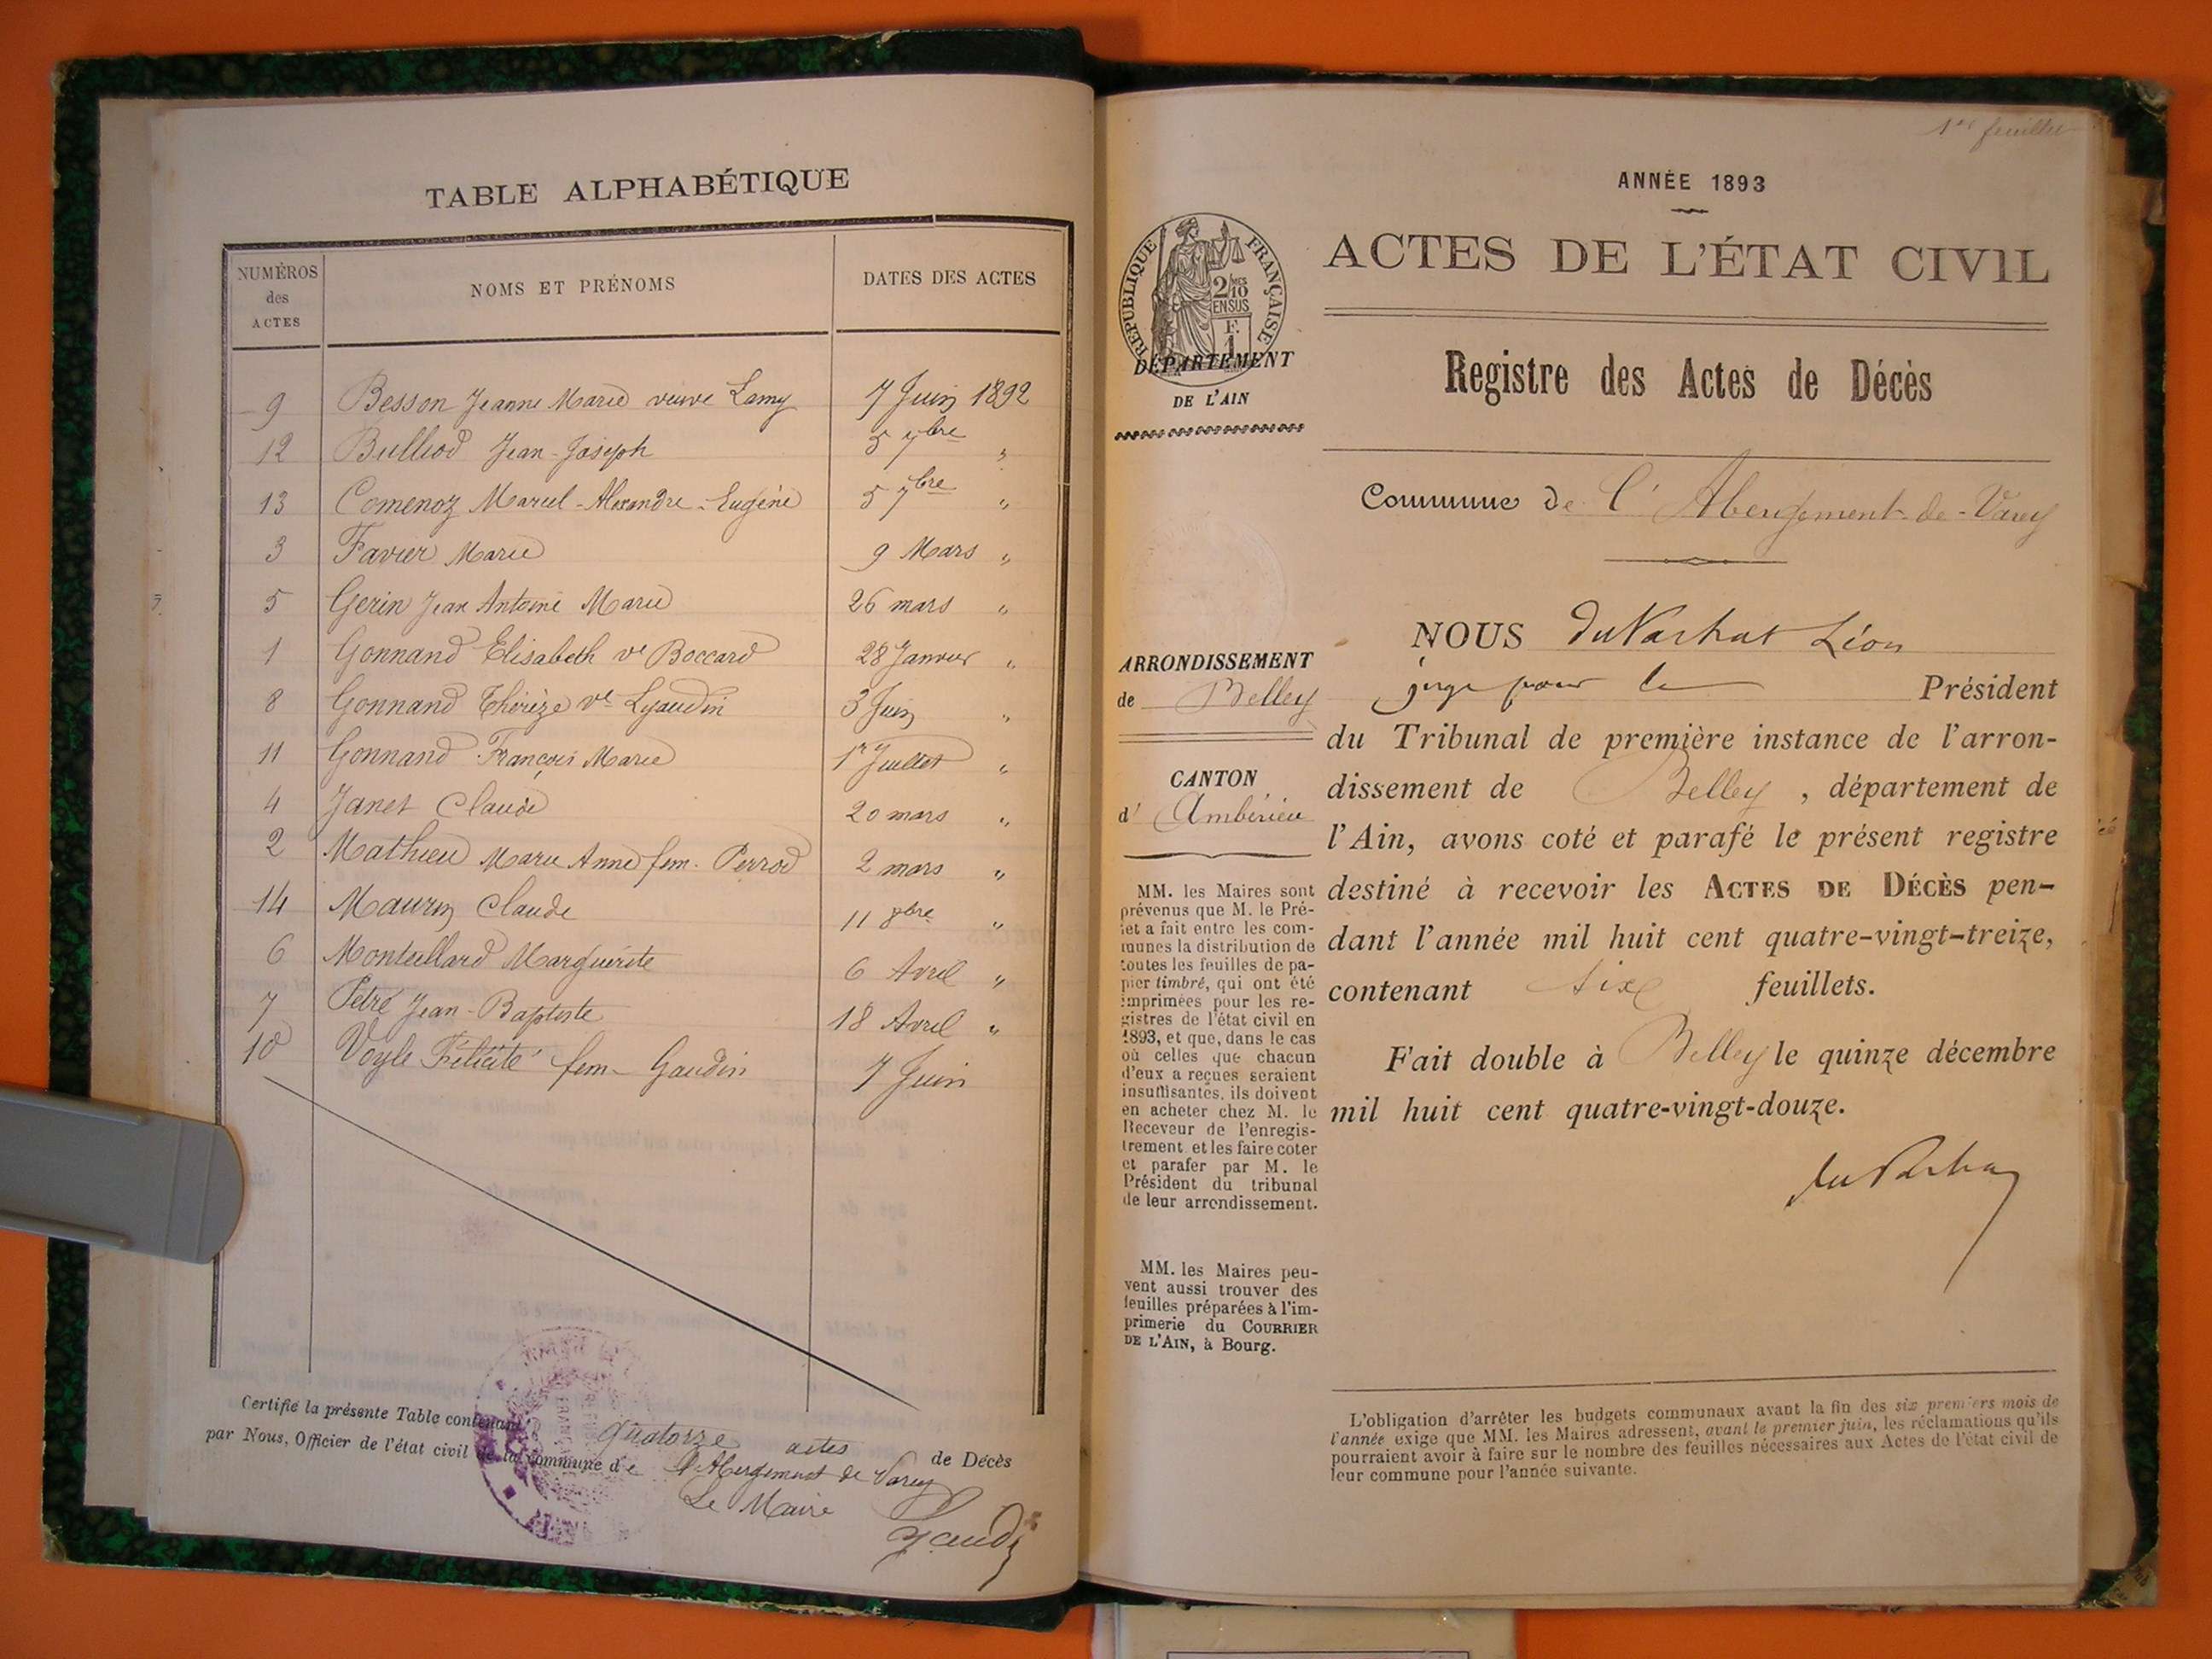 TABLE ALPHABÉTIQUE
NUMÉROS
des
ACTES
NOMS ET PRÉNOMS
DATES DES ACTES
9 Besson Jeanne Marie veuve Lamy 7 Juin 1892
12 Bulliod Jean-Joseph 5 7bre "
13 Comenoz Marcel-Alexandre-Eugène 5 7bre "
3 Favier Marie 9 Mars "
5 Gerin Jean Antoine Marie 26 mars "
1 Gonnand Elisabeth ve Boccard 28 Janvier "
8 Gonnand Thérèze ve Lyaudin 3 Juin "
11 Gonnand François Marie 1r Juillet "
4 Janet Claude 20 mars "
2 Mathieu Marie Anne fem. Perrod 2 mars "
14 Maurin Claude 11 8bre "
6 Monteillard Marguerite 6 Avril "
7 Petre Jean-Baptiste 18 Avril "
10 Voyle Félicité fem- Gaudin 7 Juin
Certifié la présente Table contenant quatorze actes de Décès
par Nous, Officier de l'état civil de la commune de l'Abergement de Varey
Le Maire
1er feuillet
ANNÉE 1893
ACTES DE L'ÉTAT CIVIL
RÉPUBLIQUE FRANÇAISE
2/10
EN SUS
F.
1
DÉPARTEMENT
DE L'AIN
Registre des Actes de Décès
Commune de l'Abergement-de-Varey
ARRONDISSEMENT
de Belley
CANTON
d'Ambérieu
MM. les Maires sont
prévenus que M. le Pré-
fet a fait entre les com-
munes la distribution de
toutes les feuilles de pa-
pier timbré, qui ont été
imprimées pour les re-
gistres de l'état civil en
1893, et que, dans le cas
où celles que chacun
d'eux a reçues seraient
insuffisantes, ils doivent
en acheter chez M. le
Receveur de l'enregis-
trement et les faire coter
et parafer par M. le
Président du tribunal
de leur arrondissement.
MM. les Maires peu-
vent aussi trouver des
feuilles préparées à l'im-
primerie du COURRIER
DE L'AIN, à Bourg.
NOUS Léon
juge pour le Président
du Tribunal de première instance de l'arron-
dissement de Belley, département de
l'Ain, avons coté et parafé le présent registre
destiné à recevoir les ACTES DE DÉCÈS pen-
dant l'année mil huit cent quatre-vingt-treize,
contenant six feuillets.
Fait double à Belley le quinze décembre
mil huit cent quatre-vingt-douze.
L'obligation d'arrêter les budgets communaux avant la fin des six premiers mois de
l'année exige que MM. les Maires adressent, avant le premier juin, les réclamations qu'ils
pourraient avoir à faire sur le nombre des feuilles nécessaires aux Actes de l'état civil de
leur commune pour l'année suivante.